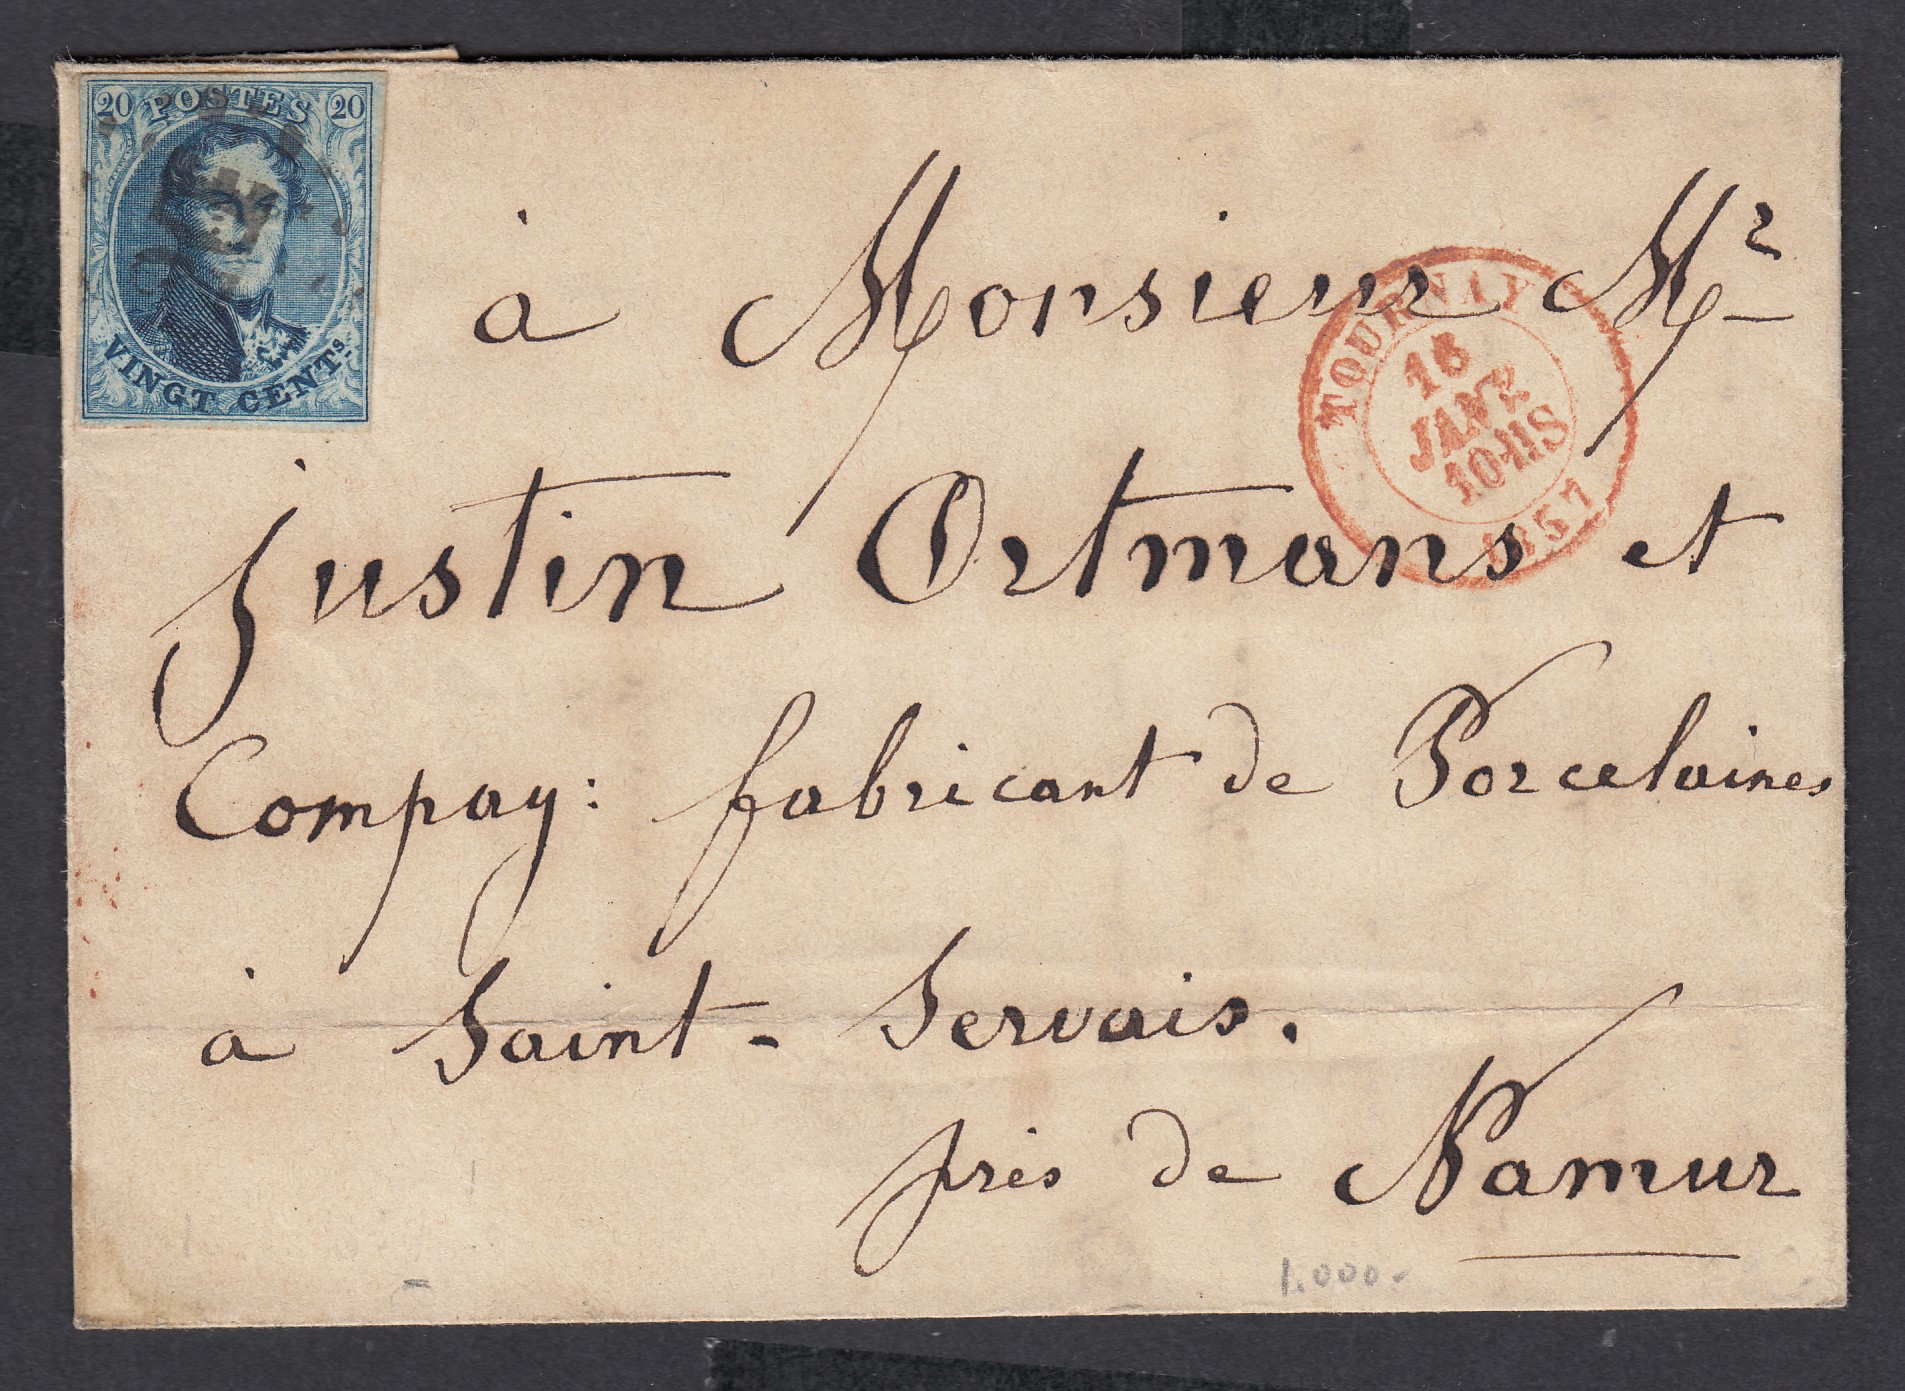 20 POSTES 20
VINGT CENTS.
à Monsieur Mr
TOURNAY
16
JANV
10-11S
1857
Justin Ortmans et
Compay: fabricant de Porcelaines
à Saint-Servais.
près de Namur
1.000-